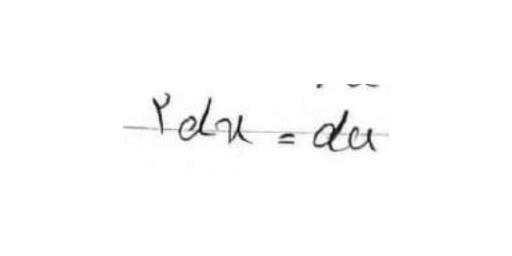 ۲dx = du